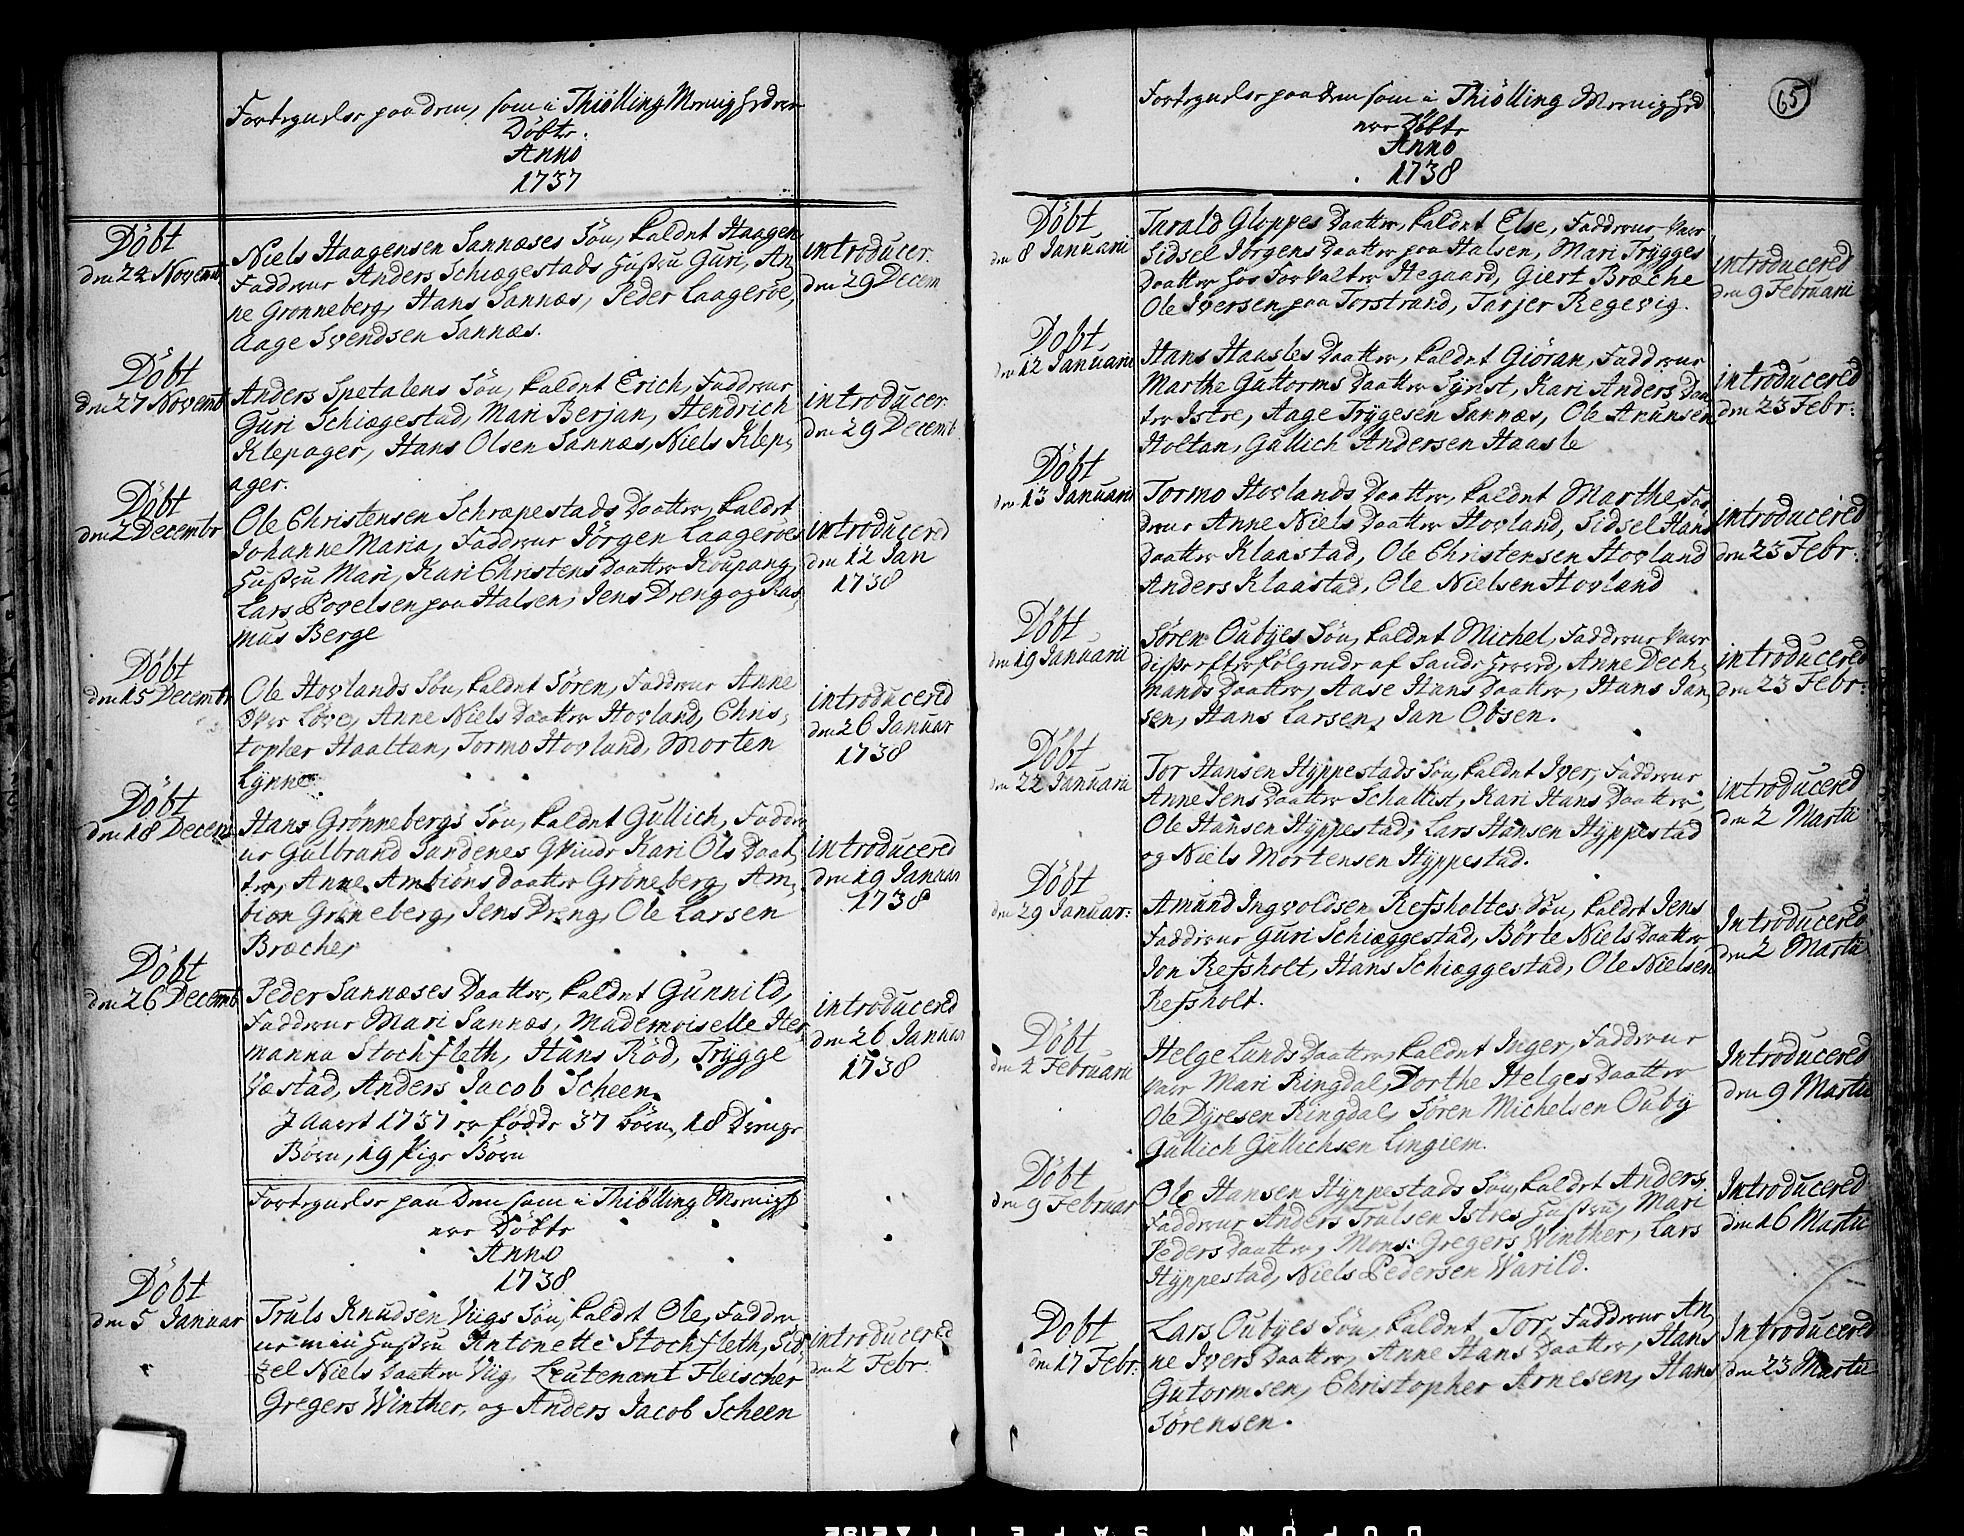 Fortegnelse paa dem, som i Thiölling Menighed ere
Döbte.
Anno
1737
Döbt
den 24 Novemb
Niels Haagensen Sannæses Sön, kaldet Haagen
Faddrene Anders Schiægestads Hustru Guri, An-
ne Grønneberg, Hans Sannæs, Peder Laageröe,
Aage Svendsen Sannæs.
introducer.
den 29 Decem
Döbt
den 27 Novemb
Anders Spetalens Sön, kaldet Erich, Faddrene
Guri Schiægestad, Mari Berjan, Hendrich
Klepager, Hans Olsen Sannæs, Niels Klep-
ager.
introducer.
den 29 Decemb
Döbt
den 2 Decembr
Ole Christensen Schræpestads Daatter, kaldet
Johanne Maria, Faddrene Jörgen Laageröes
Hustru Mari, Kari Christens Daatter Koupang,
Lars Povelsen paa Halsen, Jens Dreng og Ras-
mus Berge
introducered
den 12 Jan
1738
Döbt
den 15 Decembr
Ole Hovlands Sön, kaldet Sören, Faddrene Anne
Över Löve, Anne Niels Daatter Hovland, Chris-
topher Haaltan, Tormo Hovland, Morten
Lynne.
introducered
den 26 Januar
1738
Döbt
den 18 Decem
Hans Grönnebergs Sön, kaldet Gullich, Faddre-
ne Gulbrand Sandenes Qvinde Kari Ols Daat-
ter, Anne Ambiöns Daatter Gröneberg, Am-
biön Gröneberg, Jens Dreng, Ole Larsen
Bræche,
introducered
den 19 Januar
1738
Döbt
den 26 Decemb
Peder Sannæses Daatter, kaldet Gunnild,
Faddrene Mari Sannæs, Mademoiselle Her-
manna Stochfleth, Hans Röd, Trygge
Væstad, Anders Jacob Scheen.
introducered
den 26 Januar
1738
I Aaret 1737 er födde 37 Börn, 18 Drenge
Börn, 19 Pige Börn
Fortegnelse paa Dem som i Thiölling Menigh
ere Döbte
Anno
1738
Döbt
den 5 Januar
Truls Knudsen Viigs Sön, kaldet Ole, Faddre-
ne min Hustru Antonette Stochfleth, Sid-
zel Niels Daatter Viig, Leutenant Fleischer
Gregers Winther, og Anders Jacob Scheen
introducered
den 2 Febr.
65
Fortegnelse paa dem som i Thiölling Menighed
ere Döbte
Anno
1738
Döbt
den 8 Januarii
Tarald Gloppes Daatter, kaldet Else, Faddrene var
Sidsel Jörgens Daatter paa Halsen, Mari Trygges
Daatter hos Forvalter Hegaard, Giert Bræche
Ole Iversen paa Torstrand, Tarjer Regevig.
introducered
den 9 Februarii
Döbt
den 12 Januarii
Hans Haasles Daatter, kaldet Giöran, Faddrene
Marthe Guttorms Daatter Synst, Kari Anders Daa-
ter Istre, Aage Trygesen Sannæs, Ole Anunsen
Holtan, Gullich Andersen Haasle
introducered
den 23 Febr:
Döbt
den 13 Januarii
Tormo Hovlands Daatter, kaldet Marthe, Fad-
drene Anne Niels Daatter Hovland, Sidsel Hans
Daatter Klaastad, Ole Christensen Hovland
Anders Klaastad, Ole Nielsen Hovland
introducered
den 23 Febr.
Döbt
den 19 Januarii
Sören Oubyes Sön, kaldet Michel, Faddrene var
disse efterfölgende af Sandeherred, Anne Dech-
mands Daatter, Aase Hans Daatter, Hans Jan-
sen, Hans Larsen, Jan Olsen.
introducered
den 23 Febr:
Döbt
den 22 Januarii
Tor Hansen Hyppestads Sön, kaldet Iver, Faddrene
Anne Jens Daatter Schallist, Kari Hans Daatter
Ole Hansen Hyppestad, Lars Hansen Hyppestad
og Niels Mortensen Hyppestad.
introducered
den 2 Martii
Döbt
den 29 Januar:
Amund Ingvoldsen Refsholtes Sön, kaldet Jens
Faddrene Guri Schiæggestad, Börte Niels Daatter
Jon Refsholt, Hans Schiæggestad, Ole Nielsen
Refsholt.
Introducered
den 2 Martii
Döbt
den 2 Februarii
Helge Lunds Daatter, kaldet Inger, Faddrene
var Mari Ringdal, Dorthe Helges Daatter
Ole Dyresen Ringdal, Sören Michelsen Ouby
Gullich Gullichsen Lingiem.
Introducered
den 9 Martii
Döbt
den 9 Februar
Ole Hansen Hyppestads Sön, kaldet Anders,
Faddrene Anders Trulsen Istres Hustru, Mari
Peders Daatter, Mons: Gregers Winther, Lars
Hyppestad, Niels Pedersen Varild.
Introducered
den 16 Martii
Döbt
den 17 Febr.
Lars Oubyes Sön, kaldet Tor, Faddrene An-
ne Ivers Daatter, Anne Hans Daatter, Hans
Gutormsen, Christopher Arnesen, Hans
Sörensen.
Introducered
den 23 Martii